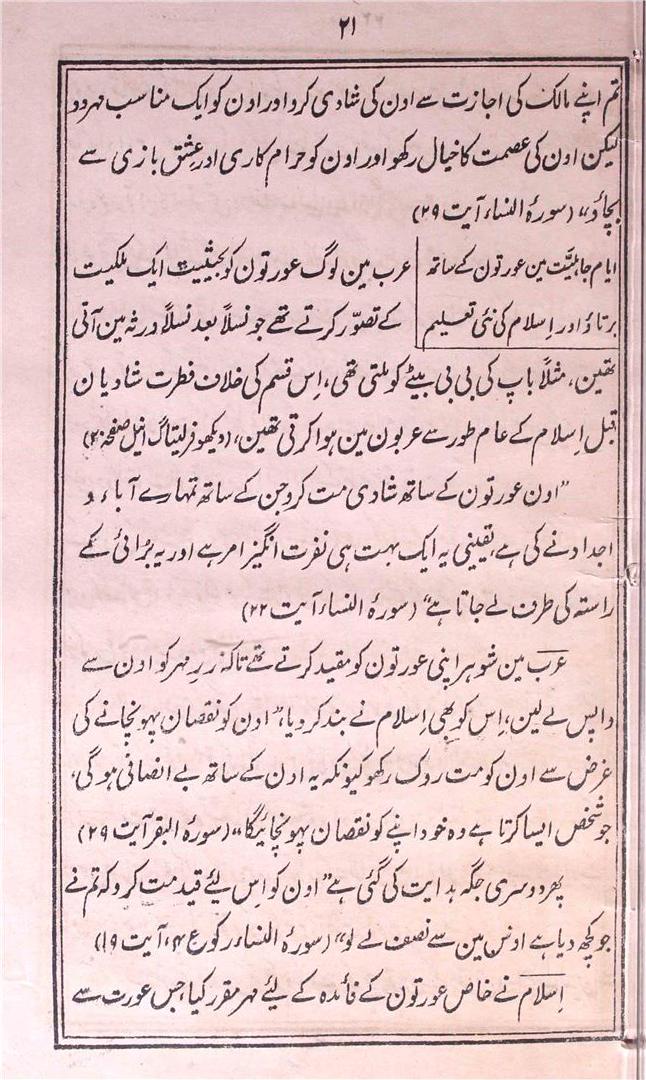 ۲۱
تم اپنے مالک کی اجازت سے اون کی شادی کرو اور اون کو ایک مناسب مہر دو
لیکن اون کی عصمت کا خیال رکھو اور اون کو حرام کاری اور عشق بازی سے
بچاؤ" (سورۂ النساء آیت ۲۹)
ایام جاہلیّت مین عورتون کے ساتھ
برتاؤ اور اِسلام کی نئی تعلیم
عرب مین لوگ عورتون کو بحیثیت ایک ملکیت
کے تصوّر کرتے تھے جو نسلاً بعد نسلاً ورثہ مین آتی
تھین، مثلاً باپ کی بی بی بیٹے کو ملتی تھی، اِس قسم کی خلاف فطرت شادیان
قبل اِسلام کے عام طور سے عربون مین ہوا کرتی تھین، (دیکھو صفحہ ۲۰)
"اون عورتون کے ساتھ شادی مت کرو جن کے ساتھ تمہارے آباء و
اجداد نے کی ہے، یقینی یہ ایک بہت ہی نفرت انگیز امر ہے اور یہ بُرائی کے
راستہ کی طرف لے جاتا ہے" (سورۂ النساء آیت ۲۲)
عرب مین شوہر اپنی عورتون کو مقید کرتے تھے تاکہ زرِ مہر کو اون سے
واپس لے لین، اِس کو بھی اِسلام نے بند کر دیا، "اون کو نقصان پہونچانے کی
غرض سے اون کو مت روک رکھو کیونکہ یہ اون کے ساتھ بے انصافی ہو گی،
جو شخص ایسا کرتا ہے وہ خود اپنے کو نقصان پہونچائیگا" (سورۂ البقر آیت ۲۹)
پھر دوسری جگہ ہدایت کی گئی ہے "اون کو اِس لیئے قید مت کرو کہ تم نے
جو کچھ دیا ہے اوس مین سے نصف لے لو" (سورۂ النساء رکوع ۴، آیت ۱۹)
اِسلام نے خاص عورتون کے فائدہ کے لیئے مہر مقرر کیا، جس عورت سے